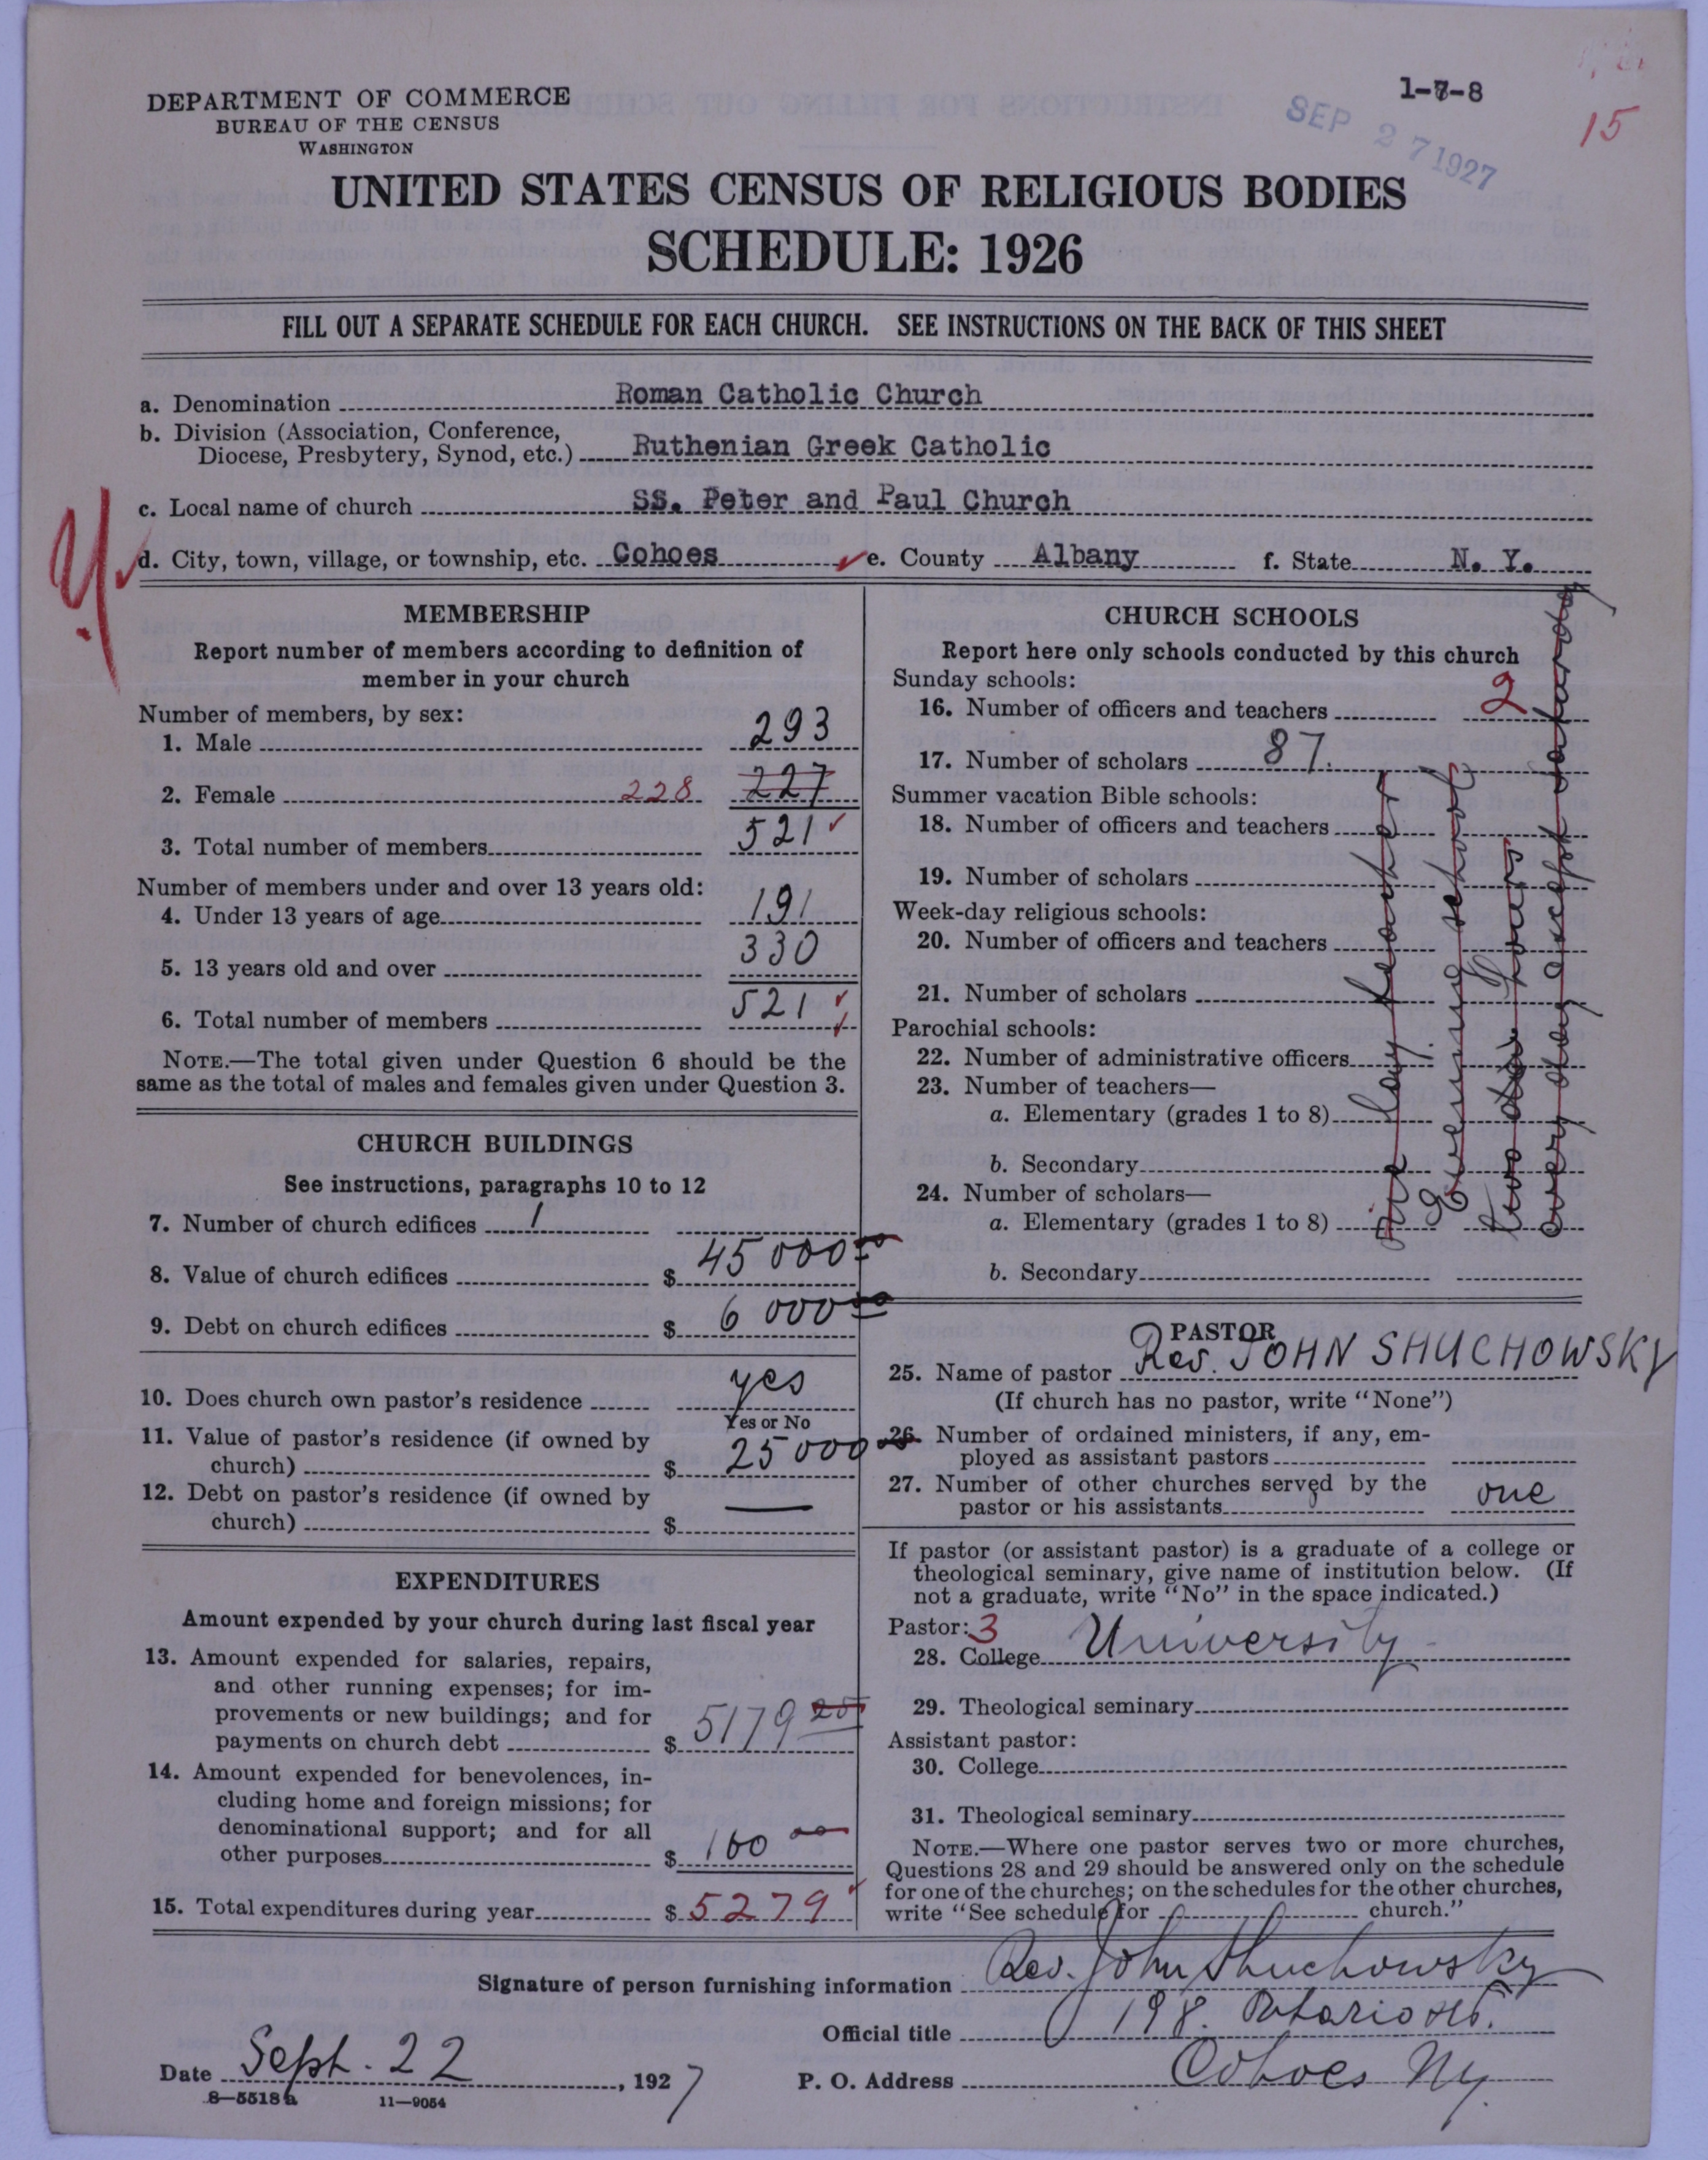 1-7-8
15
DEPARTMENT OF COMMERCE
BUREAU OF THE CENSUS
WASHINGTON
SEP 27 1927
UNITED STATES CENSUS OF RELIGIOUS BODIES
SCHEDULE: 1926
FILL OUT A SEPARATE SCHEDULE FOR EACH CHURCH. SEE INSTRUCTIONS ON THE BACK OF THIS SHEET
a. Denomination Roman Catholic Church
b. Division (Association, Conference,
Diocese, Presbytery, Synod, etc.) Ruthenian Greek Catholic
c. Local name of church SS. Peter and Paul Church
d. City, town, village, or township, etc. Cohoes e. County Albany f. State N. Y.
MEMBERSHIP
Report number of members according to definition of
member in your church
Number of members, by sex:
1. Male 293
2. Female 228 227
3. Total number of members 521
Number of members under and over 13 years old:
4. Under 13 years of age 191
5. 13 years old and over 330
6. Total number of members 521
NOTE.—The total given under Question 6 should be the
same as the total of males and females given under Question 3.
CHURCH BUILDINGS
See instructions, paragraphs 10 to 12
7. Number of church edifices 1
8. Value of church edifices $ 45 000 00
9. Debt on church edifices $ 6 000 00
10. Does church own pastor's residence yes
Yes or No
11. Value of pastor's residence (if owned by
church) $ 25 000 00
12. Debt on pastor's residence (if owned by
church) $ —
EXPENDITURES
Amount expended by your church during last fiscal year
13. Amount expended for salaries, repairs,
and other running expenses; for im-
provements or new buildings; and for
payments on church debt $ 5179 25
14. Amount expended for benevolences, in-
cluding home and foreign missions; for
denominational support; and for all
other purposes $ 100 00
15. Total expenditures during year $ 5279
CHURCH SCHOOLS
Report here only schools conducted by this church
Sunday schools:
16. Number of officers and teachers 2
17. Number of scholars 87.
Summer vacation Bible schools:
18. Number of officers and teachers
19. Number of scholars
Week-day religious schools:
20. Number of officers and teachers
21. Number of scholars
Parochial schools:
22. Number of administrative officers
23. Number of teachers—
a. Elementary (grades 1 to 8)
b. Secondary
24. Number of scholars—
a. Elementary (grades 1 to 8)
b. Secondary
one lay teacher
Evening school
two hours
every day except saturday
PASTOR
25. Name of pastor Rev. JOHN SHUCHOWSKY
(If church has no pastor, write "None")
26. Number of ordained ministers, if any, em-
ployed as assistant pastors
27. Number of other churches served by the
pastor or his assistants one
If pastor (or assistant pastor) is a graduate of a college or
theological seminary, give name of institution below. (If
not a graduate, write "No" in the space indicated.)
Pastor: 3
28. College University
29. Theological seminary
Assistant pastor:
30. College
31. Theological seminary
NOTE.—Where one pastor serves two or more churches,
Questions 28 and 29 should be answered only on the schedule
for one of the churches; on the schedules for the other churches,
write "See schedule for church."
Signature of person furnishing information Rev. John Shuchowsky
Official title 198. Ontario St.
Date Sept. 22, 1927 P. O. Address Cohoes Ny.
8—5518a 11—9054